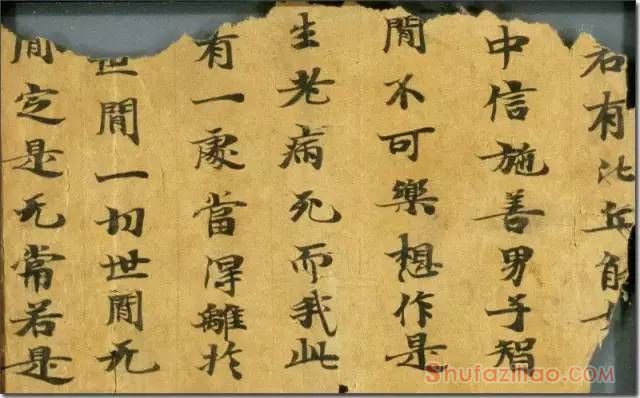 若有比丘能
中信施善男子智
間不可樂想作是
生老病死而我此
有一處當得離於
世間一切世間无
間定是无常若是
Shufaziliao.com